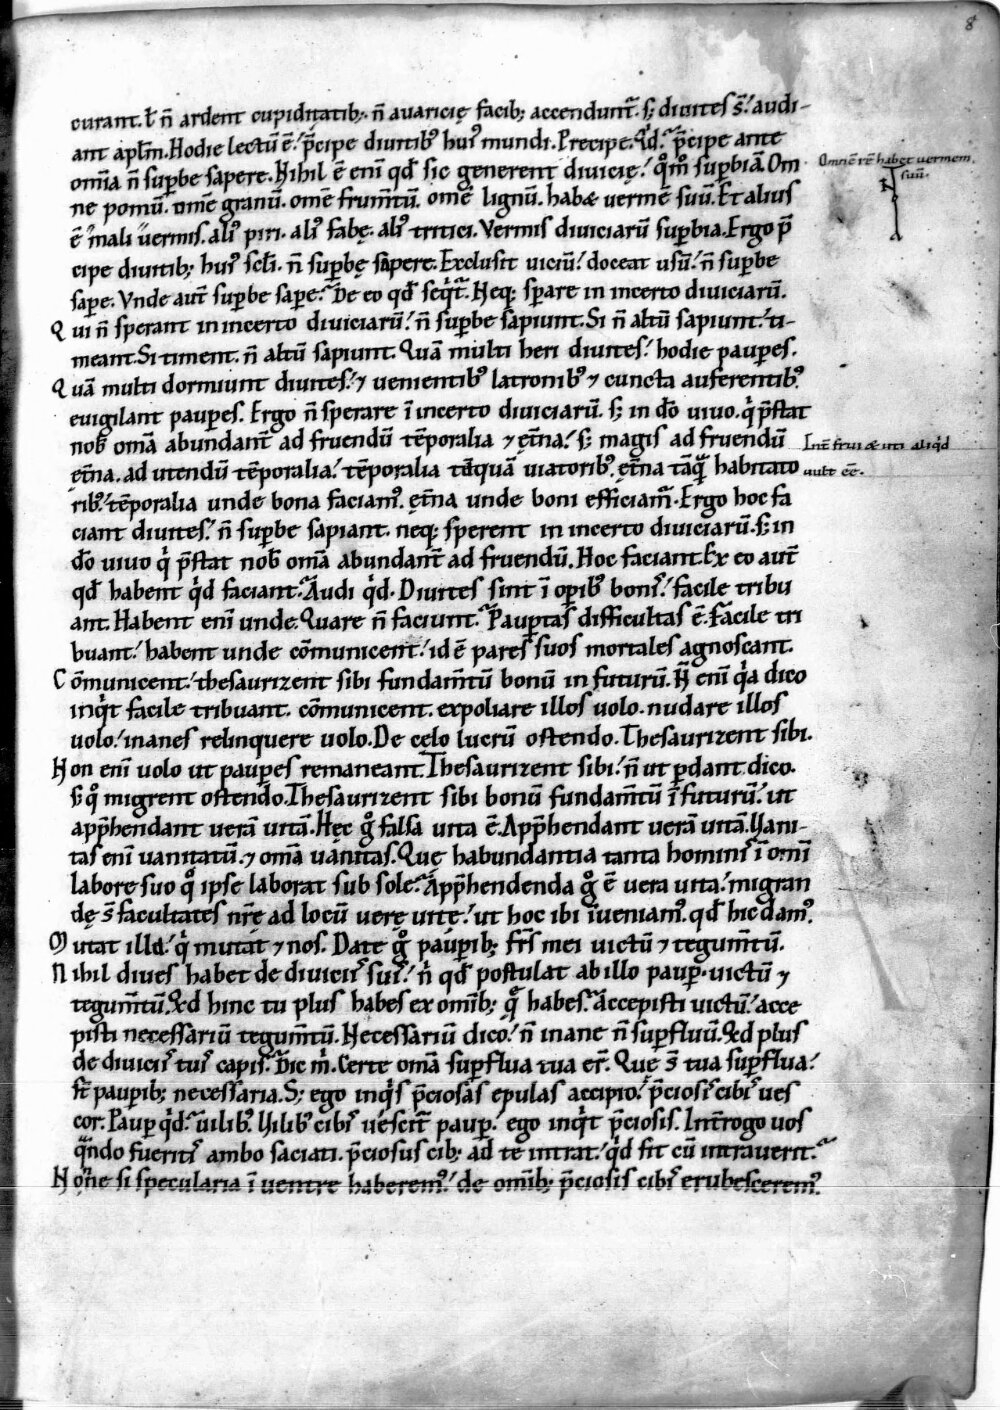 8
curant. ł n̄ ardent cupiditatib;. n̄ auaricię facib; accendunt̄. s; diuites s̄.' audi-
ant apłm. Hodie lectū ē.' p̄cipe diuitibꝰ huiꝰ mundi. Precipe. Qͥd. p̄cipe ante
om̄ia n̄ suꝑbe sapere. Nihil ē enī qd̄ sic generent diuicię.' qͦm̊ suꝑbiā. Om
ne pomū. om̄e granū. omē frum̄tū. omē lignū. habæ uermē suū. Et aliuſ
ē mali uermis. aliꝰ piri. aliꝰ fabę. aliꝰ tritici. Vermis diuiciarū suꝑbia. Ergo p̄
cipe diuitib; huiꝰ scłi. n̄ suꝑbę sapere. Exclusit uiciū.' doceat usū.' n̄ suꝑbe
saꝑe. Vnde aut̄ suꝑbe saꝑe. De eo qd̄ seqͥt̄. Neq; sꝑare in incerto diuiciarū.
Q ui n̄ sperant in incerto diuiciarū.' n̄ suꝑbe sapiunt. Si n̄ altū sapiunt.' ti-
meant. Si timent. n̄ altū sapiunt. Quā multi heri diuites.' hodie pauꝑes.
Q uā multi dormiunt diuites.' ⁊ uenientibꝰ latronibꝰ ⁊ cuncta auferentibꝰ.
euigilant pauꝑes. Ergo n̄ sperare ī incerto diuiciarū. s; in dō uiuo. qͥ p̄stat
nob̄ omā abundant̄ ad fruendū tēporalia ⁊ et̄na.' s; magis ad fruendū
ęt̄na. ad utendū tēporalia.' tēporalia tāquā uiatoribꝰ. ęt̄na tāqͣ habitato
ribꝰ.' tēporalia unde bona faciamꝰ. ęt̄na unde boni efficiamͬ. Ergo hoc fa
ciant diuites.' n̄ suꝑbe sapiant. neq; sperent in incerto diuiciarū. s; in
dō uiuo qͥ p̄stat nob̄ omā abundant̄ ad fruendū. Hoc faciant. Ex eo aut̄
qd̄ habent qͥd faciant. Audi qͥd. Diuites sint ī oꝑibꝰ bonis.' facile tribu
ant. Habent enī unde. Quare n̄ faciunt. Pauꝑtas difficultas ē. Facile tri
buant.' habent unde cōmunicent.' id ē pares suos mortales agnoscant.
C ōmunicent.' thesaurizent sibi fundam̄tū bonū in futurū. N̄ enī qͥa dico
inqͥt facile tribuant. cōmunicent. expoliare illos uolo. nudare illos
uolo.' inanes relinquere uolo. De cęlo lucrū ostendo. Thesaurizent sibi.
N on enī uolo ut pauꝑes remaneant. Thesaurizent sibi.' n̄ ut ꝑdant dico.
s; qͦ migrent ostendo. Thesaurizent sibi bonū fundam̄tū ī futurū.' ut
app̄hendant uerā uitā. Hęc gͦ falsa uita ē. App̄hendant uerā uitā. Vani-
tas enī uanitatū. ⁊ omā uanitas. Quę habundantia tanta hominis ī omī
labore suo qͦ ipse laborat sub sole. App̄hendenda gͦ ē uera uita.' migran
dę s̄ facultates nr̄ę ad locū uerę uitę.' ut hoc ibi īueniamꝰ. qd̄ hic damꝰ.
M utat illa.' qͥ mutat ⁊ nos. Date gͦ pauꝑib; fr̄s mei uictū ⁊ tegum̄tū.
N ihil diues habet de diuiciis suis.' n̄ qd̄ postulat ab illo pauꝑ. uictū ⁊
tegum̄tū. Qd̄ hinc tu plus habes ex omīb; qͣ habes. accepisti uictū.' acce
pisti necessariū tegum̄tū. Necessariū dico.' n̄ inane n̄ suꝑfluū. Qd̄ plus
de diuiciis tuis capis. Dic m̄. Certe omā suꝑflua tua er̄. Quę s̄ tua suꝑflua.'
st̄ pauꝑib; necessaria. S; ego inqͥs p̄ciosas epulas accipio.' p̄ciosis cibis ues
cor. Pauꝑ qͥd. uilibꝰ. Vilibꝰ cibis uescit̄ pauꝑ. ego inqͥt p̄ciosis. Int̄rogo uos
qͣndo fueritis ambo saciati. p̄ciosus cib; ad te intrat.' qͥd fit cū intrauerit.
N oñe si specularia ī uentre haberemꝰ.' de omīb; p̄ciosis cibis erubescerem̄ꝰ.
Omnē rē habet uermem
suū.
Int̄ frui æ uti aliqͥd
uult eē.